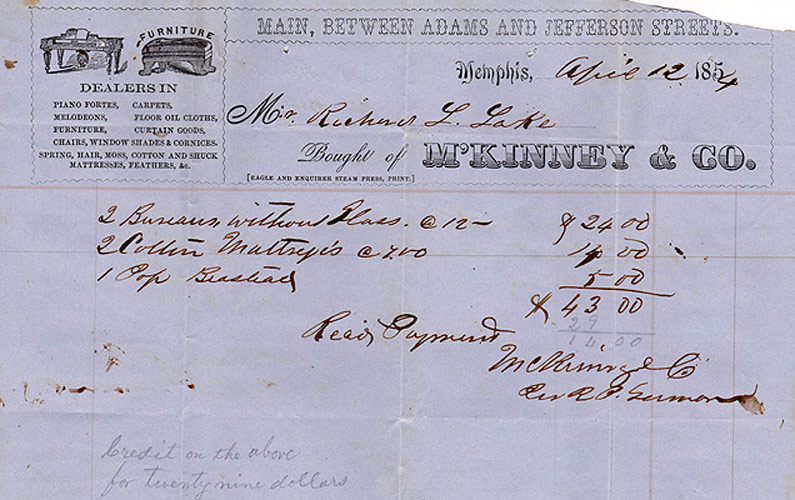 MAIN, BETWEEN ADAMS AND JEFFERSON STREETS.
FURNITURE
DEALERS IN
PIANO FORTES, CARPETS,
MELODEONS, FLOOR OIL CLOTHS,
FURNITURE, CURTAIN GOODS,
CHAIRS, WINDOW SHADES & CORNICES.
SPRING, HAIR, MOSS, COTTON AND SHUCK
MATTRESSES, FEATHERS, &c.
Memphis, April 12 1854
Mr. Richard L. Lake
Bought of M'KINNEY & CO.
[EAGLE AND ENQUIRER STEAM PRESS, PRINT.]
2 Bureaus, without Glass. @ 12 – $ 24 00
2 Cotton Mattresses @ 7.00 14 00
1 Pop Beastead 5 00
$ 43 00
29
14.00
Recd Payment
McKinney & Co
Per R. P.
Credit on the above
for twenty nine dollars